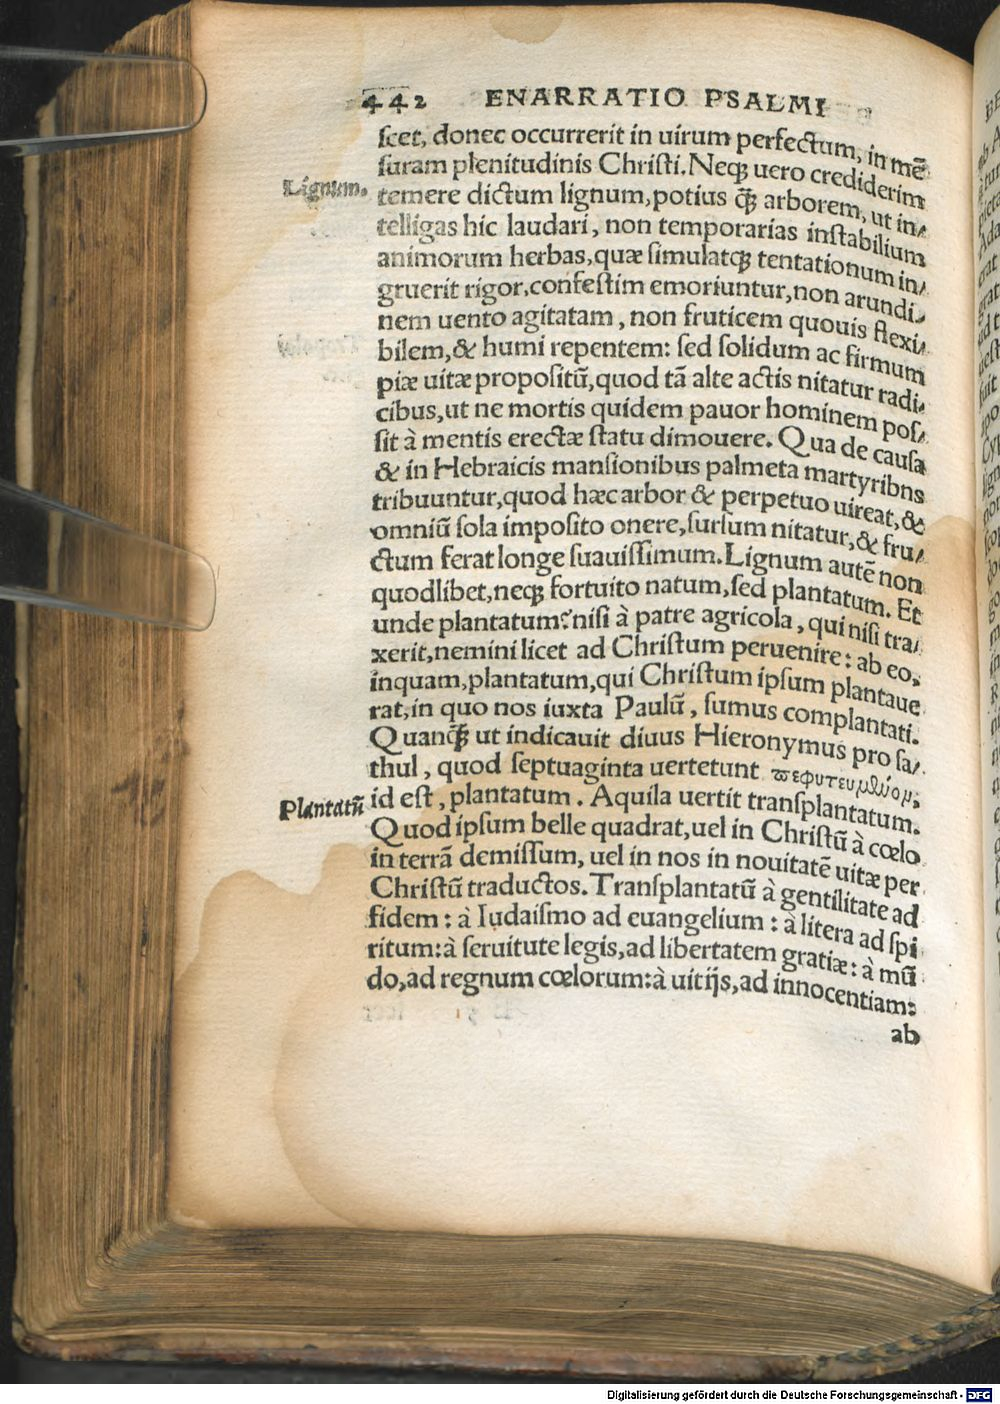 442 ENARRATIO PSALMI
scet, donec occurrerit in uirum perfectum, in mē
suram plenitudinis Christi. Neqꝫ uero crediderim
Lignum.
temere dictum lignum, potius ꝗ̃ arborem, ut in⸗
telligas hic laudari, non temporarias instabilium
animorum herbas, quæ simulatqꝫ tentationum in⸗
gruerit rigor, confestim emoriuntur, non arundi⸗
nem uento agitatam, non fruticem quouis flexi⸗
bilem, & humi repentem: sed solidum ac firmum
piæ uitæ propositū, quod tā alte actis nitatur radi⸗
cibus, ut ne mortis quidem pauor hominem pos⸗
sit à mentis erectæ statu dimouere. Qua de causa
& in Hebraicis mansionibus palmeta martyribns
tribuuntur, quod hæc arbor & perpetuo uireat, &
omniū sola imposito onere, sursum nitatur, & fru⸗
ctum ferat longe suauissimum. Lignum autē non
quodlibet, neqꝫ fortuito natum, sed plantatum. Et
unde plantatum? nisi à patre agricola, qui nisi tra⸗
xerit, nemini licet ad Christum peruenire: ab eo,
inquam, plantatum, qui Christum ipsum plantaue
rat, in quo nos iuxta Paulū, sumus complantati.
Quanꝗ̃ ut indicauit diuus Hieronymus pro sa⸗
thul, quod septuaginta uertetunt πεφυτευμένομ,
Plantatū
id est, plantatum. Aquila uertit transplantatum.
Quod ipsum belle quadrat, uel in Christū à cœlo
in terrā demissum, uel in nos in nouitatē uitæ per
Christū traductos. Transplantatū à gentilitate ad
fidem: à Iudaismo ad euangelium: à litera ad spi
ritum: à seruitute legis, ad libertatem gratiæ: à mū
do, ad regnum cœlorum: à uitijs, ad innocentiam:
ab
Digitalisierung gefördert durch die Deutsche Forschungsgemeinschaft - DFG